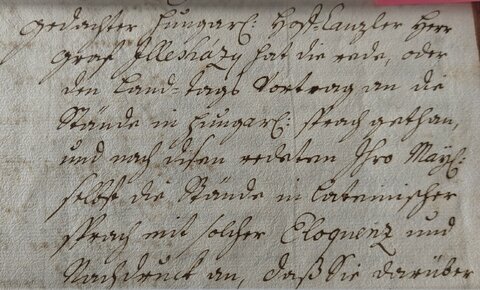 gedachter Hungarl: Hoff-Canzler Herr
Graf Illeshazy hat die rede, oder
den Land-tags Vortrag an die
Stände in Hungarl: sprach gethan,
und nach disen redeten Ihro Mayl:
selbst die Stände in Lateinischer
sprach mit solcher Eloquenz und
Nachdruck an, daß Sie darüber